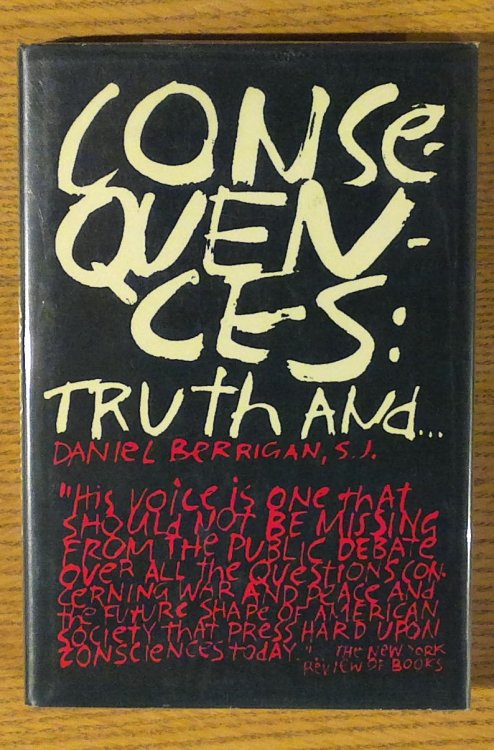 CONSE-
QUEN-
CES:
TRUTH AND...
DANIEL BERRIGAN, S.J.
"HIS VOICE IS ONE THAT
SHOULD NOT BE MISSING
FROM THE PUBLIC DEBATE
OVER ALL THE QUESTIONS CON-
CERNING WAR AND PEACE AND
THE FUTURE SHAPE OF AMERICAN
SOCIETY THAT PRESS HARD UPON
CONSCIENCES TODAY." THE NEW YORK
REVIEW OF BOOKS